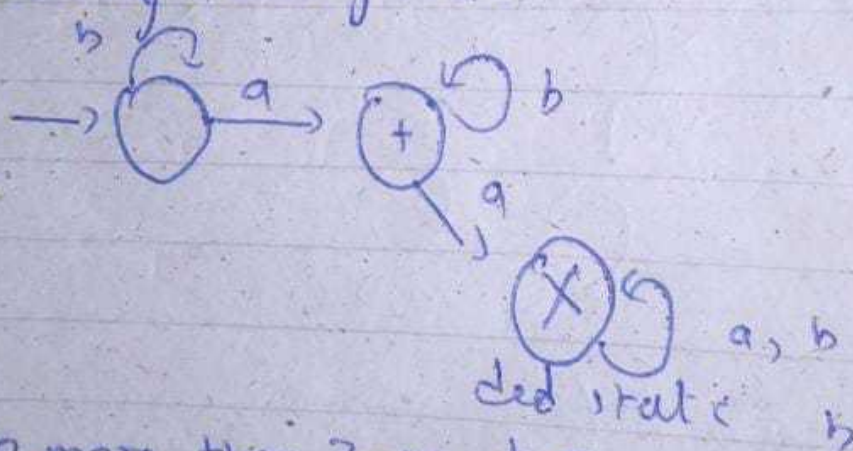 b
a
+
b
a
X
a, b
ded state
b